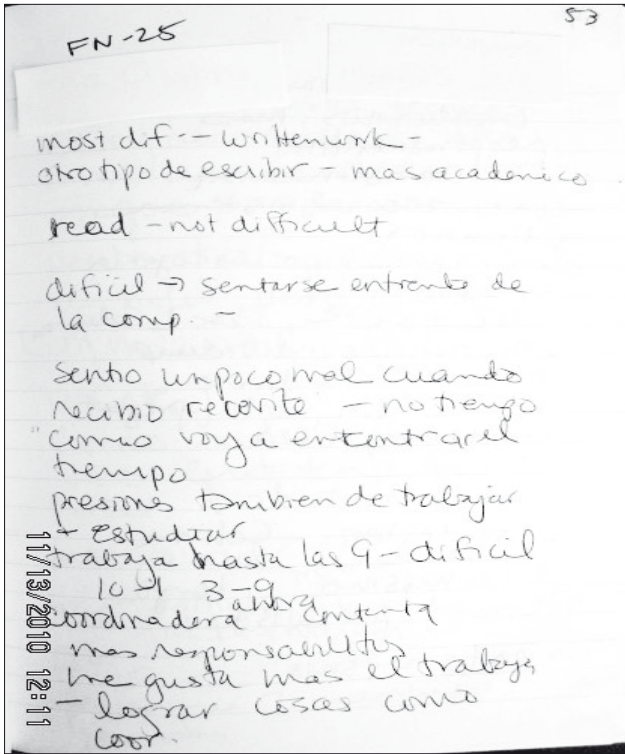 53
FN-25
most dif -- written work -
otro tipo de escribir - mas academico
read - not difficult
dificil → sentarse entrente de
la comp. -
sentio un poco mal cuando
recibio rewrite - no tiengo
"como voy a entontrar el
tiempo
presiones tambien de trabajar
+ estudiar
trabaja hasta las 9 - dificil
10-1 3-9
ahora
coordinadora contenta
mas
me gusta mas el trabajo
- lograr cosas como
coor.
11/13/2010 12:11